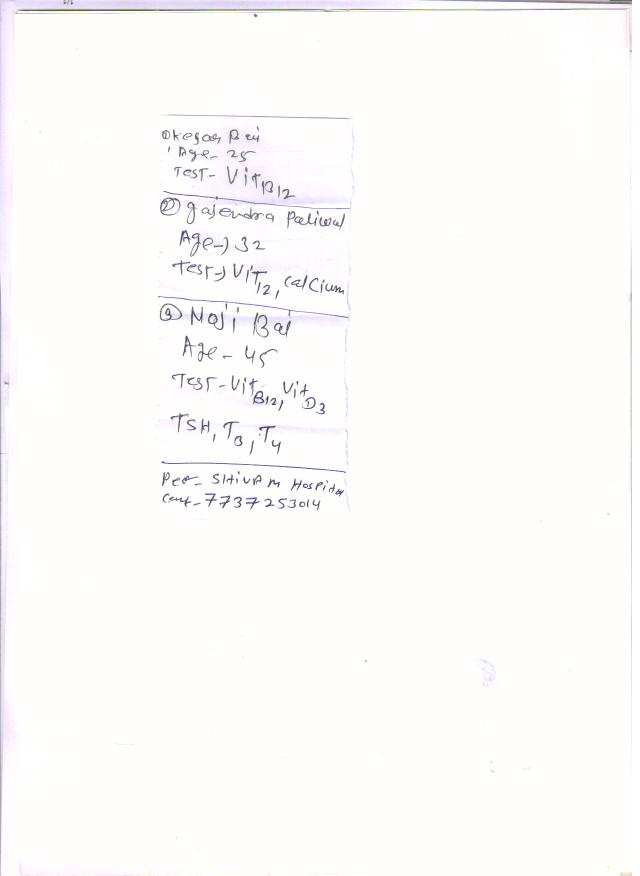 ① Kesar Bai
Age - 25
Test - Vit B12
② Gajendra Paliwal
Age → 32
Test → Vit 12, calcium
③ Noji Bai
Age - 45
Test - Vit B12, Vit D3
TSH, T3, T4
SHIVAM Hospital
7737253014